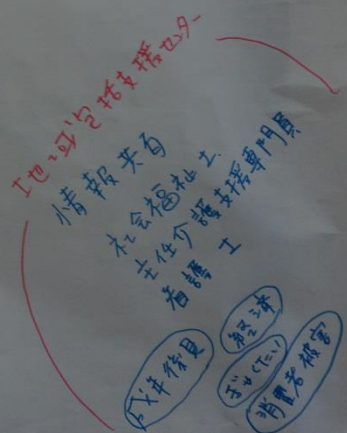 地域包括支援センター
情報共有
社会福祉士
主任介護支援専門員
看護士
成年後見
経済
ぎゃくたい
消費者被害